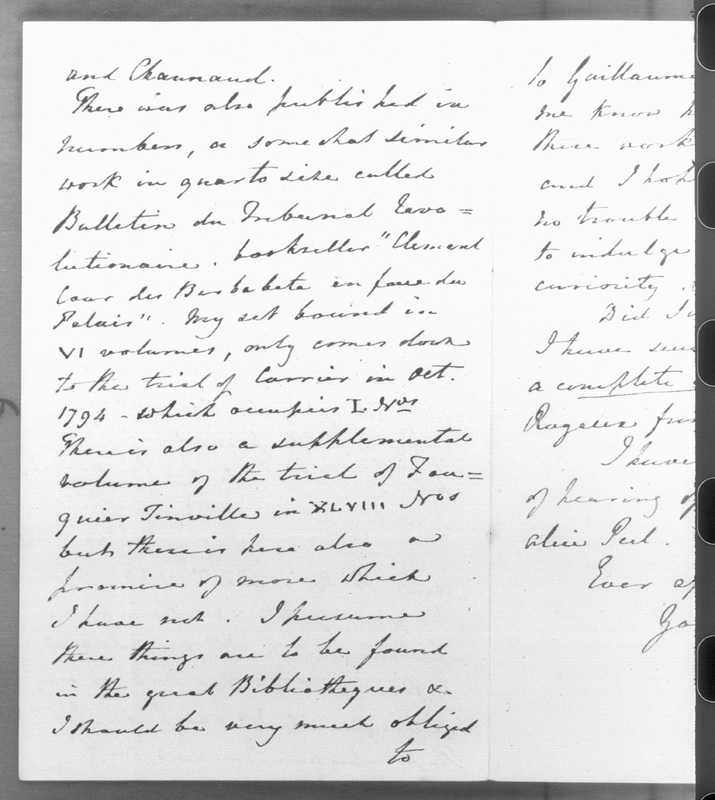 and Chaumaud.
There was also published in
numbers, a somewhat similar
work in quarto size called
Bulletin du Tribunal Revo=
lutionaire. bookseller "Clement
Cour des Barbabete en face du
Palais". My set bound in
VI volumes, only comes down
to the trial of Carrier in Oct.
1794 - which occupies L Nos
There is also a supplemental
volume of the trial of Fou=
quier Tinville in XLVIII Nos
but there is here also a
promise of more which
I have not. I presume
these things are to be found
in the great Bibliotheques &
I should be very much obliged
to
to Guillaume
me know
these work
and I hop
no trouble
to indulge
curiosity.
Did I
I have
a complete
I have
of hearing of
alice Peel.
Ever
Yo